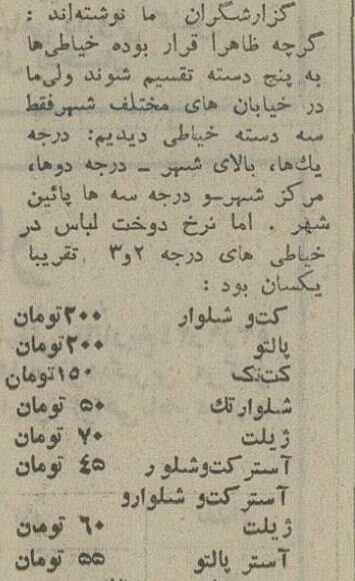 گزارشگران ما نوشته‌اند :
گرچه ظاهرا قرار بوده خیاطی‌ها
به پنج دسته تقسیم شوند ولی‌ما
در خیابان های مختلف شهرفقط
سه دسته خیاطی دیدیم: درجه
یك‌ها، بالای شهر ـ درجه دوها،
مرکز شهر-و درجه سه ها پائین
شهر . اما نرخ دوخت لباس در
خیاطی های درجه ۲و۳ تقریبا
یکسان بود :
کت‌و شلوار ۲۰۰تومان
پالتو ۲۰۰تومان
کت‌تک ۱۵۰تومان
شلوارتك ۵۰ تومان
ژیلت ۷۰ تومان
آسترکت‌وشلو ر ۴۵ تومان
آسترکت‌و شلوارو
ژیلت ۶۰ تومان
آستر پالتو ۵۵ تومان